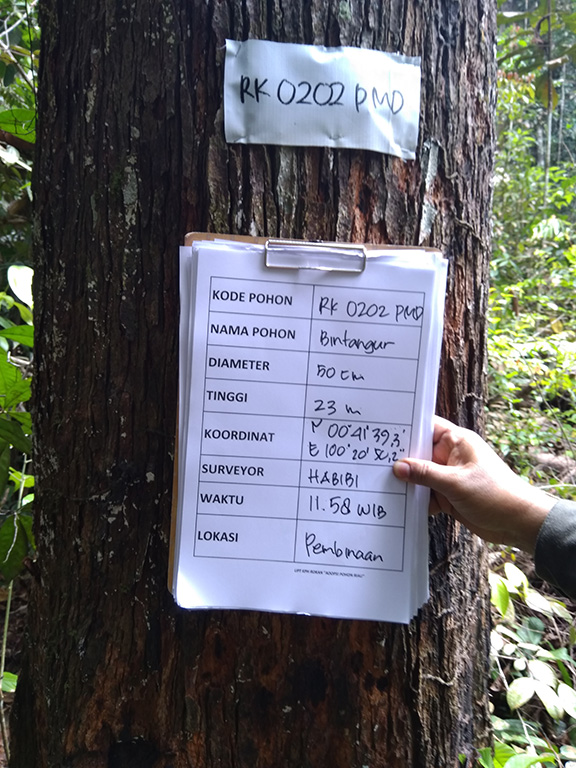 RK 0202 PMD
KODE POHON RK 0202 PMD
NAMA POHON Bintangur
DIAMETER 50 cm
TINGGI 23 m
KOORDINAT N 00°41'39,3"
E 100°20'50,2"
SURVEYOR HABIBI
WAKTU 11.58 WIB
LOKASI Pembinaan
UPT KPH ROKAN "ADOPSI POHON RIAU"